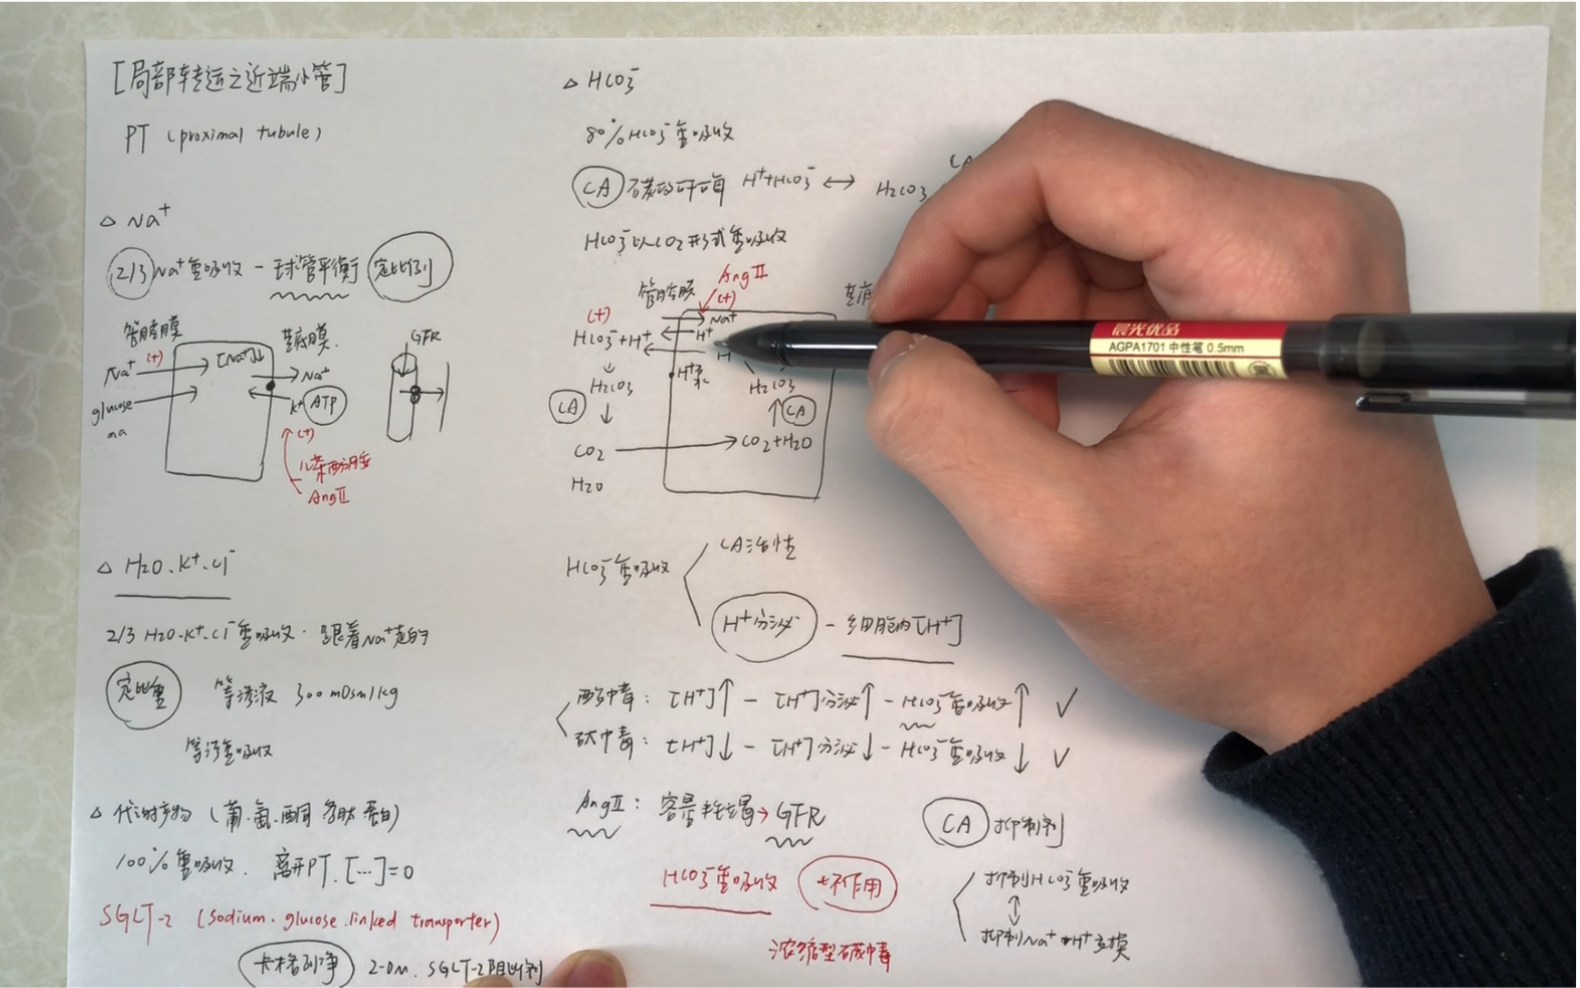 [局部转运之近端小管]
PT (proximal tubule)
△ Na⁺
2/3 Na⁺重吸收 - 球管平衡 定比例
管腔膜
基底膜
GFR
Na⁺ (+)
[Na⁺]↓
Na⁺
glucose
aa
K⁺ ATP
(+)
儿茶酚胺
AngⅡ
△ H2O.K⁺.Cl⁻
2/3 H2O.K⁺.Cl⁻重吸收. 跟着Na⁺走的
定比重 等渗液 300 mOsm/kg
等渗重吸收
△ 代谢产物 (葡.氨.酮 多肽 蛋白)
100%重吸收. 离开PT. [...]=0
SGLT-2 (sodium.glucose.linked transporter)
卡格列净 2-DM. SGLT-2阻断剂
△ HCO3⁻
80%HCO3⁻重吸收
CA 碳酸酐酶 H⁺+HCO3⁻ ↔ H2CO3
CA
HCO3⁻以CO2形式重吸收
管腔膜
AngⅡ
(+)
基底
(+)
Na⁺
HCO3⁻+H⁺
H⁺
H
H⁺泵
H2CO3
H2CO3
CA
CA
CO2 → CO2+H2O
H2O
HCO3⁻重吸收
CA活性
H⁺分泌 - 细胞内[H⁺]
酸中毒: [H⁺]↑ - [H⁺]分泌↑ - HCO3⁻重吸收↑ ✓
碱中毒: [H⁺]↓ - [H⁺]分泌↓ - HCO3⁻重吸收↓ ✓
AngⅡ: 容量 → GFR
HCO3⁻重吸收 副作用
浓缩型碱中毒
CA 抑制剂
抑制HCO3⁻重吸收
抑制Na⁺ H⁺交换
晨光优品
AGPA1701 中性笔 0.5mm